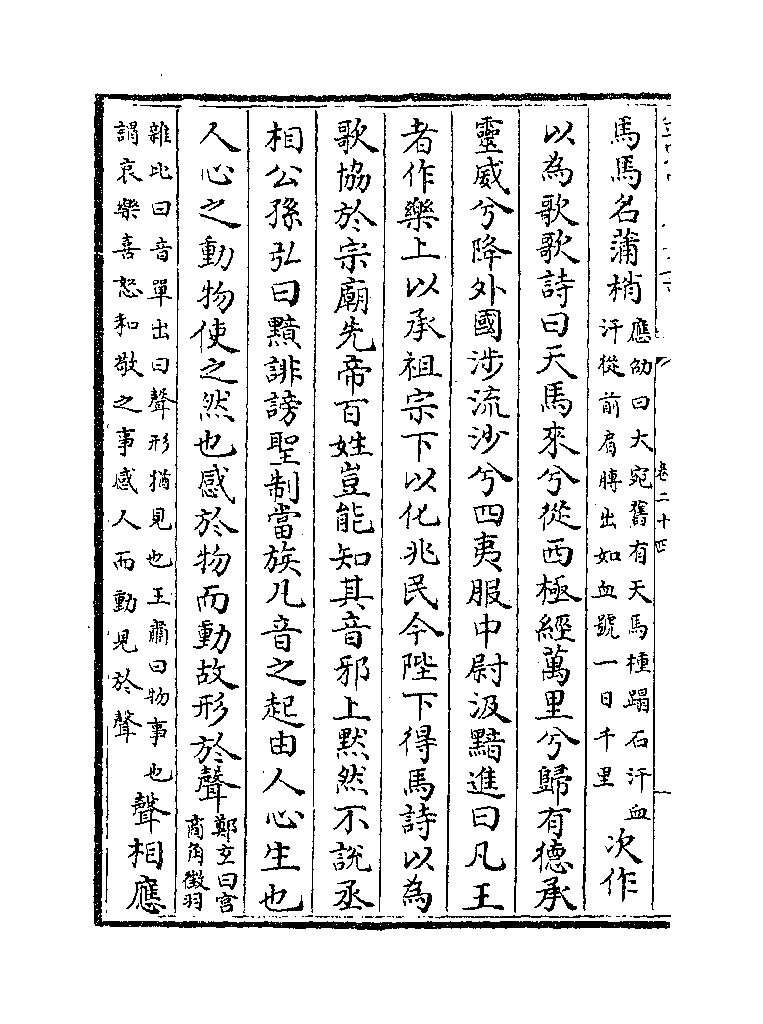 馬馬名蒲梢應劭曰大宛舊有天馬種蹋石汗血汗從前肩膊出如血號一日千里次作
以為歌歌詩曰天馬來兮從西極經萬里兮歸有德承
靈威兮降外國涉流沙兮四夷服中尉汲黯進曰凡王
者作樂上以承祖宗下以化兆民今陛下得馬詩以為
歌協於宗廟先帝百姓豈能知其音邪上黙然不說丞
相公孫弘曰黯誹謗聖制當族凡音之起由人心生也
人心之動物使之然也感於物而動故形於聲鄭玄曰宫商角徵羽
雜比曰音單出曰聲形猶見也王肅曰物事也謂哀樂喜怒和敬之事感人而動見於聲聲相應
卷二十四